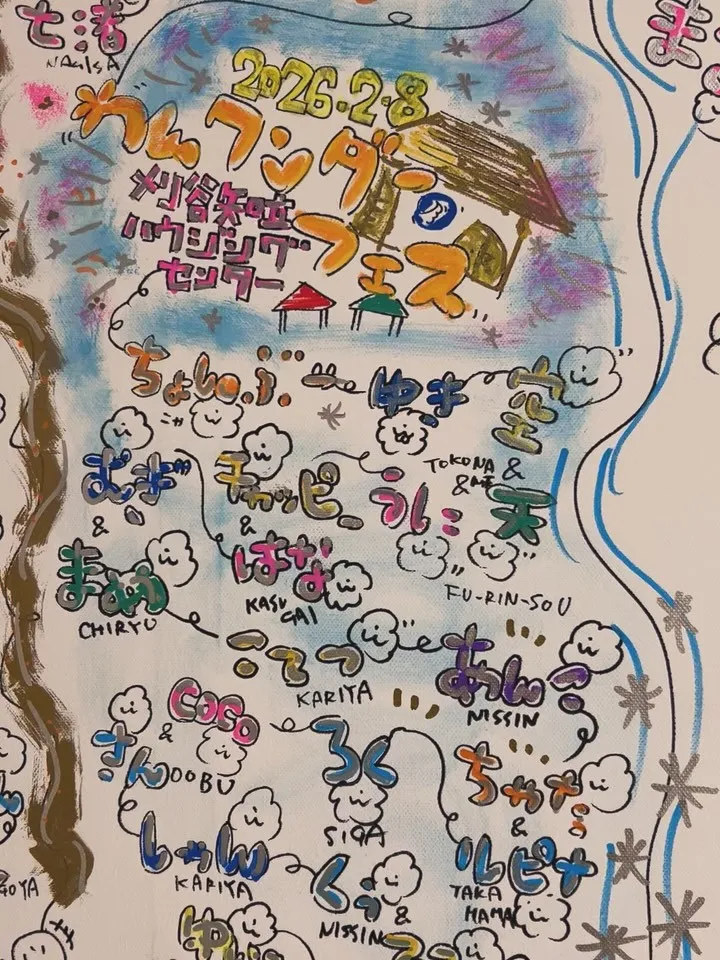 七渚
NAGISA
2026.2.8
わんワンダー
フェス
刈谷知立
ハウジング
センター
ちょんぶー
ゆま
空
TOKONA &
むぎ
&
まめ
CHIRYU
チャッピー
&
はな
KASUGAI
うに
天
FU-RIN-SOU
こてつ
KARIYA
あんこ
NISSIN
COCO
&
さん
OOBU
ろく
SIGA
ちゃちゃ
&
ルピナ
TAKAHAMA
しゅん
KARIYA
くぅ
&
NISSIN
GOYA
ま